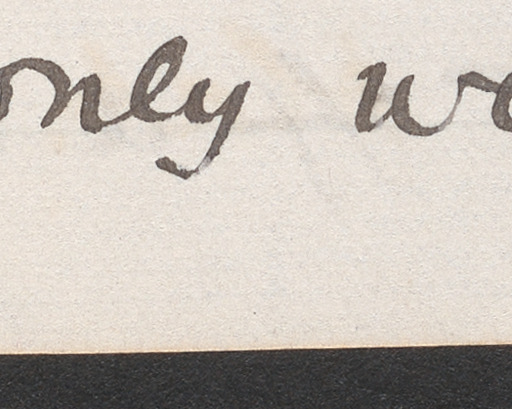 only we